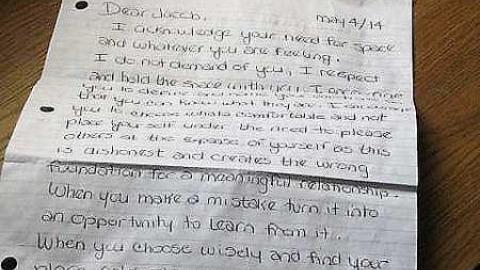 Dear Jacob, May 4/14
I acknowledge your need for space
and whatever you are feeling.
I do not demand of you, I respect
and hold the space with you. I
you to
that you can know what they are. I encourage
you to choose whats comfortable and not
place yourself under the need to please
others at the expense of yourself as this
is dishonest and creates the wrong
foundation for a meaningful relationship.
When you make a mistake turn it into
an opportunity to learn from it.
When you choose wisely and find your